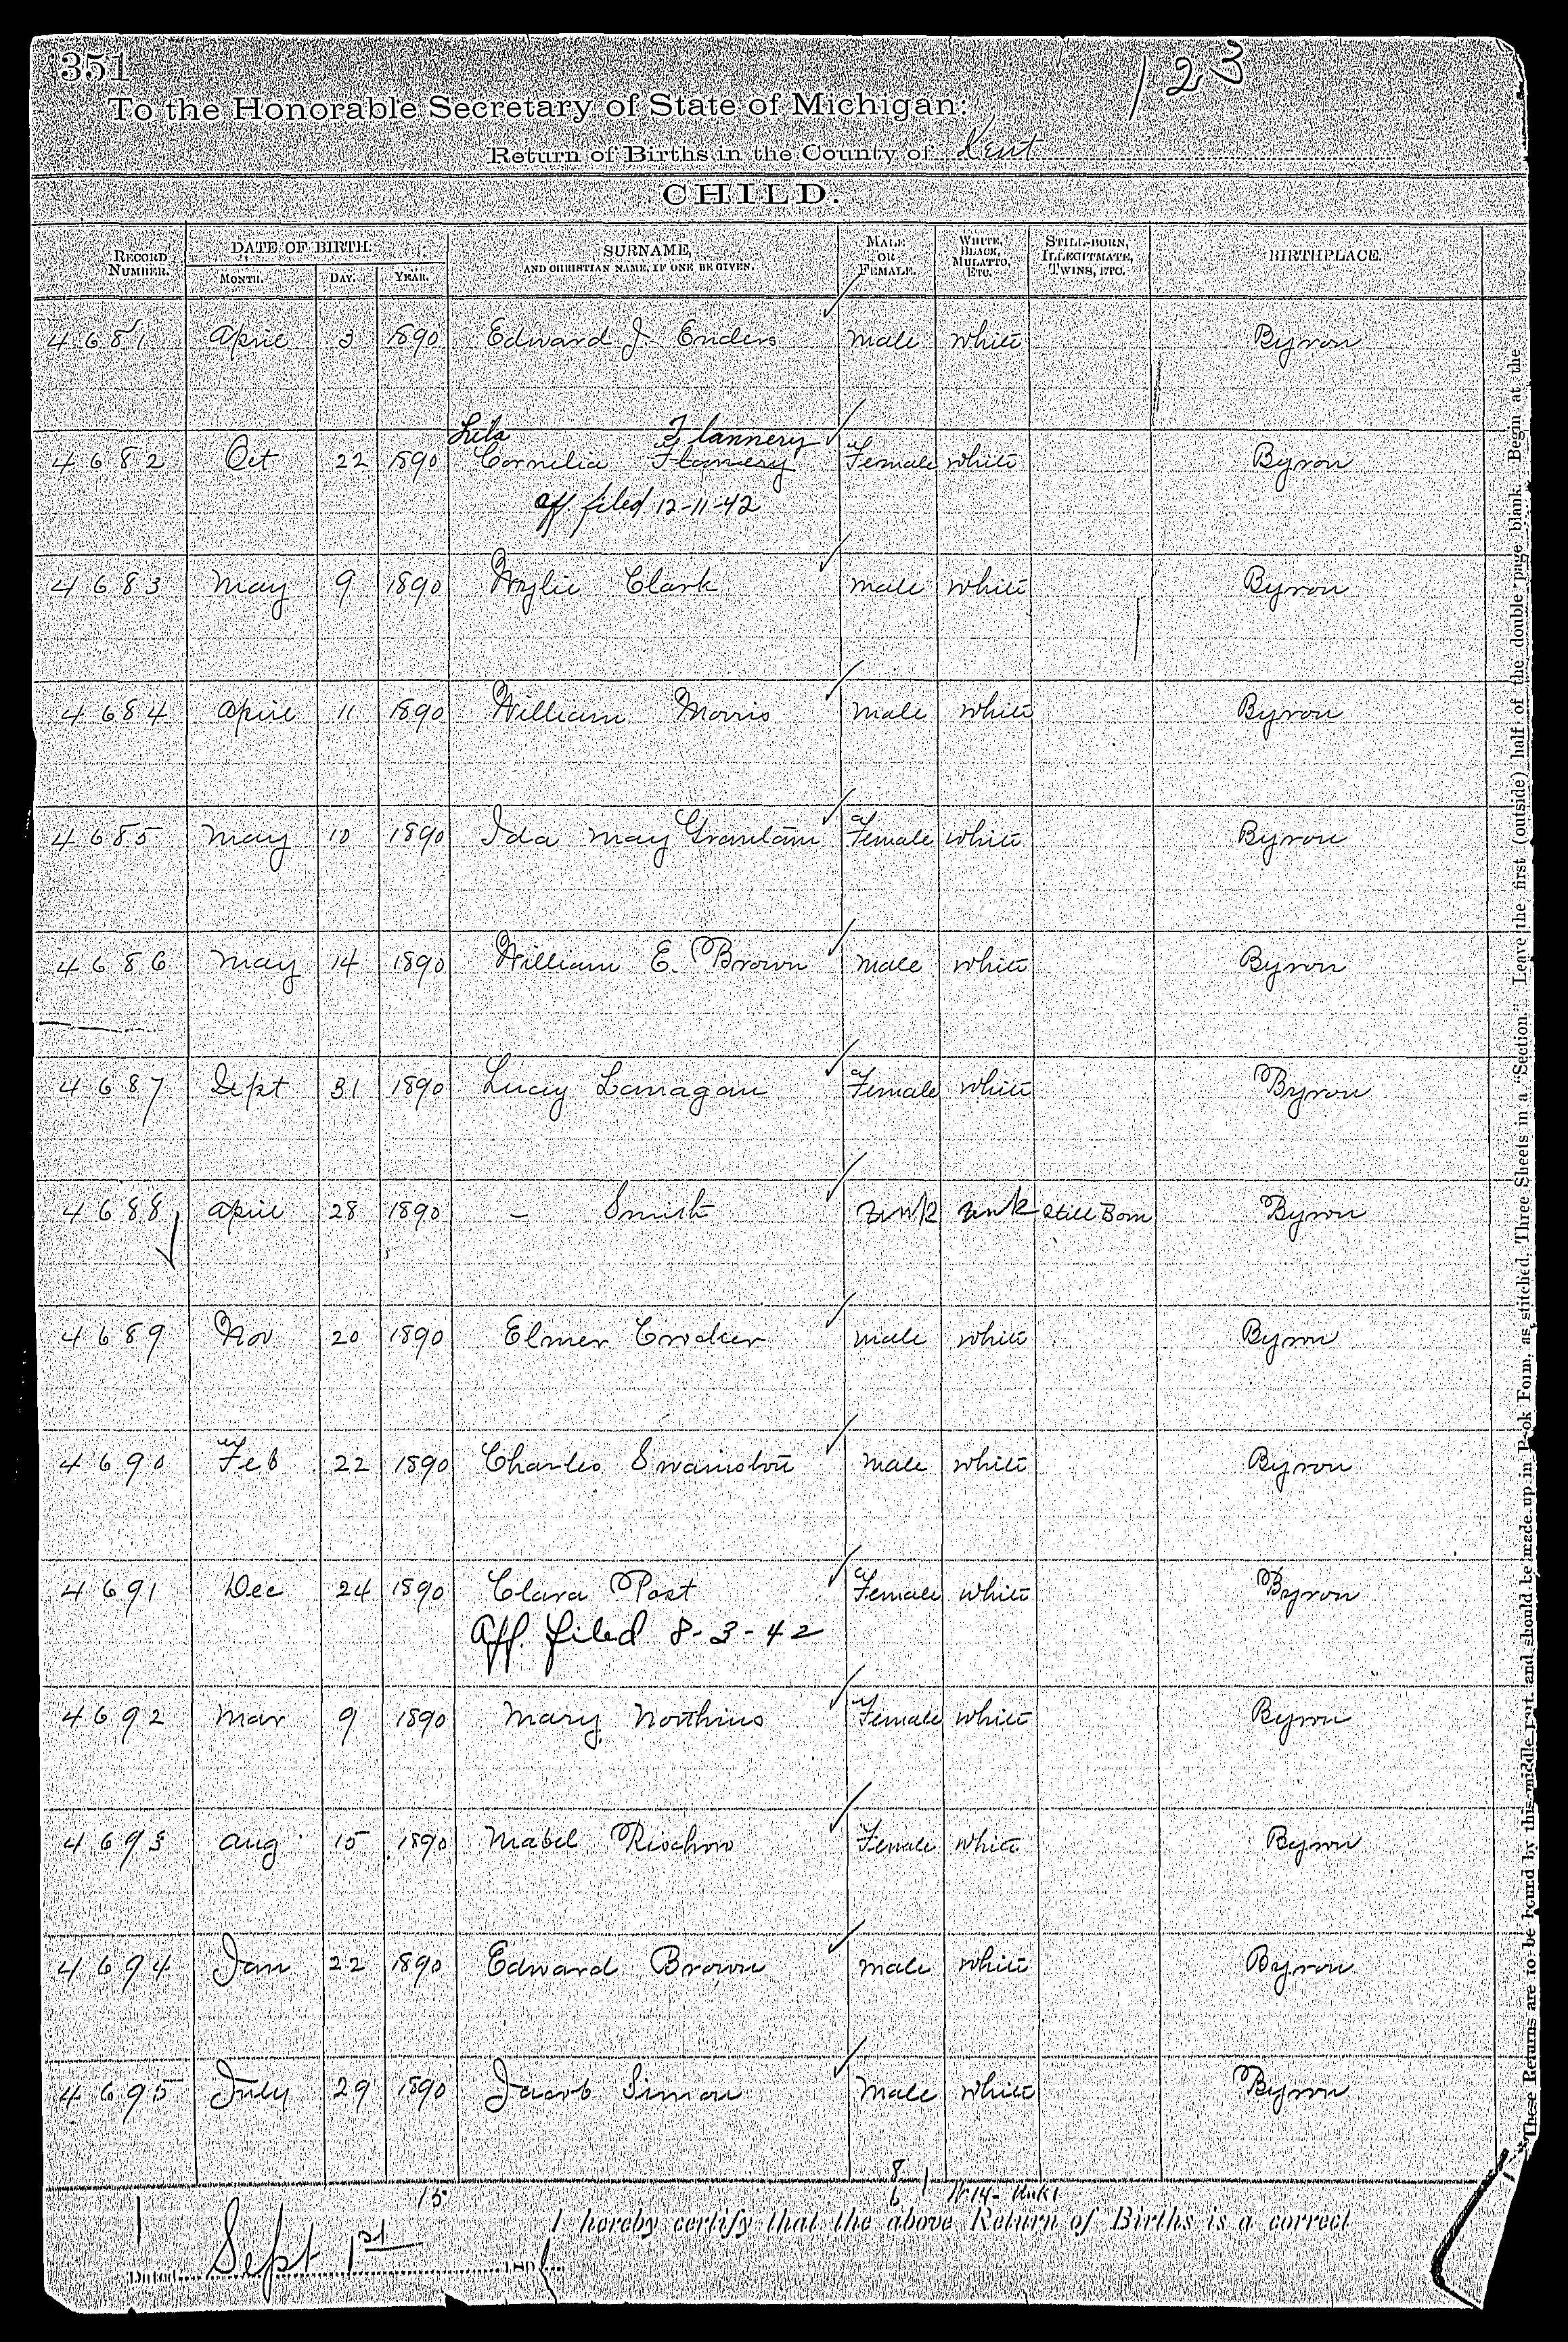 351
123
To the Honorable Secretary of State of Michigan:
Return of Births in the County of Kent
CHILD.
RECORD NUMBER. DATE OF BIRTH. MONTH. DAY. YEAR. SURNAME, AND CHRISTIAN NAME, IF ONE BE GIVEN. MALE OR FEMALE. WHITE, BLACK, MULATTO, ETC. STILL-BORN, ILLEGITMATE, TWINS, ETC. BIRTHPLACE.
4681 April 3 1890 Edward J. Enders Male White Byron
Lila Flannery
4682 Oct 22 1890 Cornelia Flannery Female White Byron
aff. filed 12-11-42
4683 May 9 1890 Wylie Clark Male White Byron
4684 April 11 1890 William Morris Male White Byron
4685 May 10 1890 Ida May Female White Byron
4686 May 14 1890 William E. Brown Male White Byron
4687 Sept 31 1890 Lucy Lanagan Female White Byron
4688 April 28 1890 – Smith unk unk Still Born Byron
4689 Nov 20 1890 Elmer Male White Byron
4690 Feb 22 1890 Charles Swainston Male White Byron
4691 Dec 24 1890 Clara Post Female White Byron
Aff. filed 8-3-42
4692 Mar 9 1890 Mary Female White Byron
4693 Aug 15 1890 Mabel Rischow Female White Byron
4694 Jan 22 1890 Edward Brown Male White Byron
4695 July 29 1890 Jacob Simon Male White Byron
15 8 6 1 W 14 - Unk 1
I hereby certify that the above Return of Births is a correct
Dated Sept 1st 18
These Returns are to be bound by this middle part and should be made up in Book Form, as stitched, Three Sheets in a "Section." Leave the first (outside) half of the double page blank. Begin at the